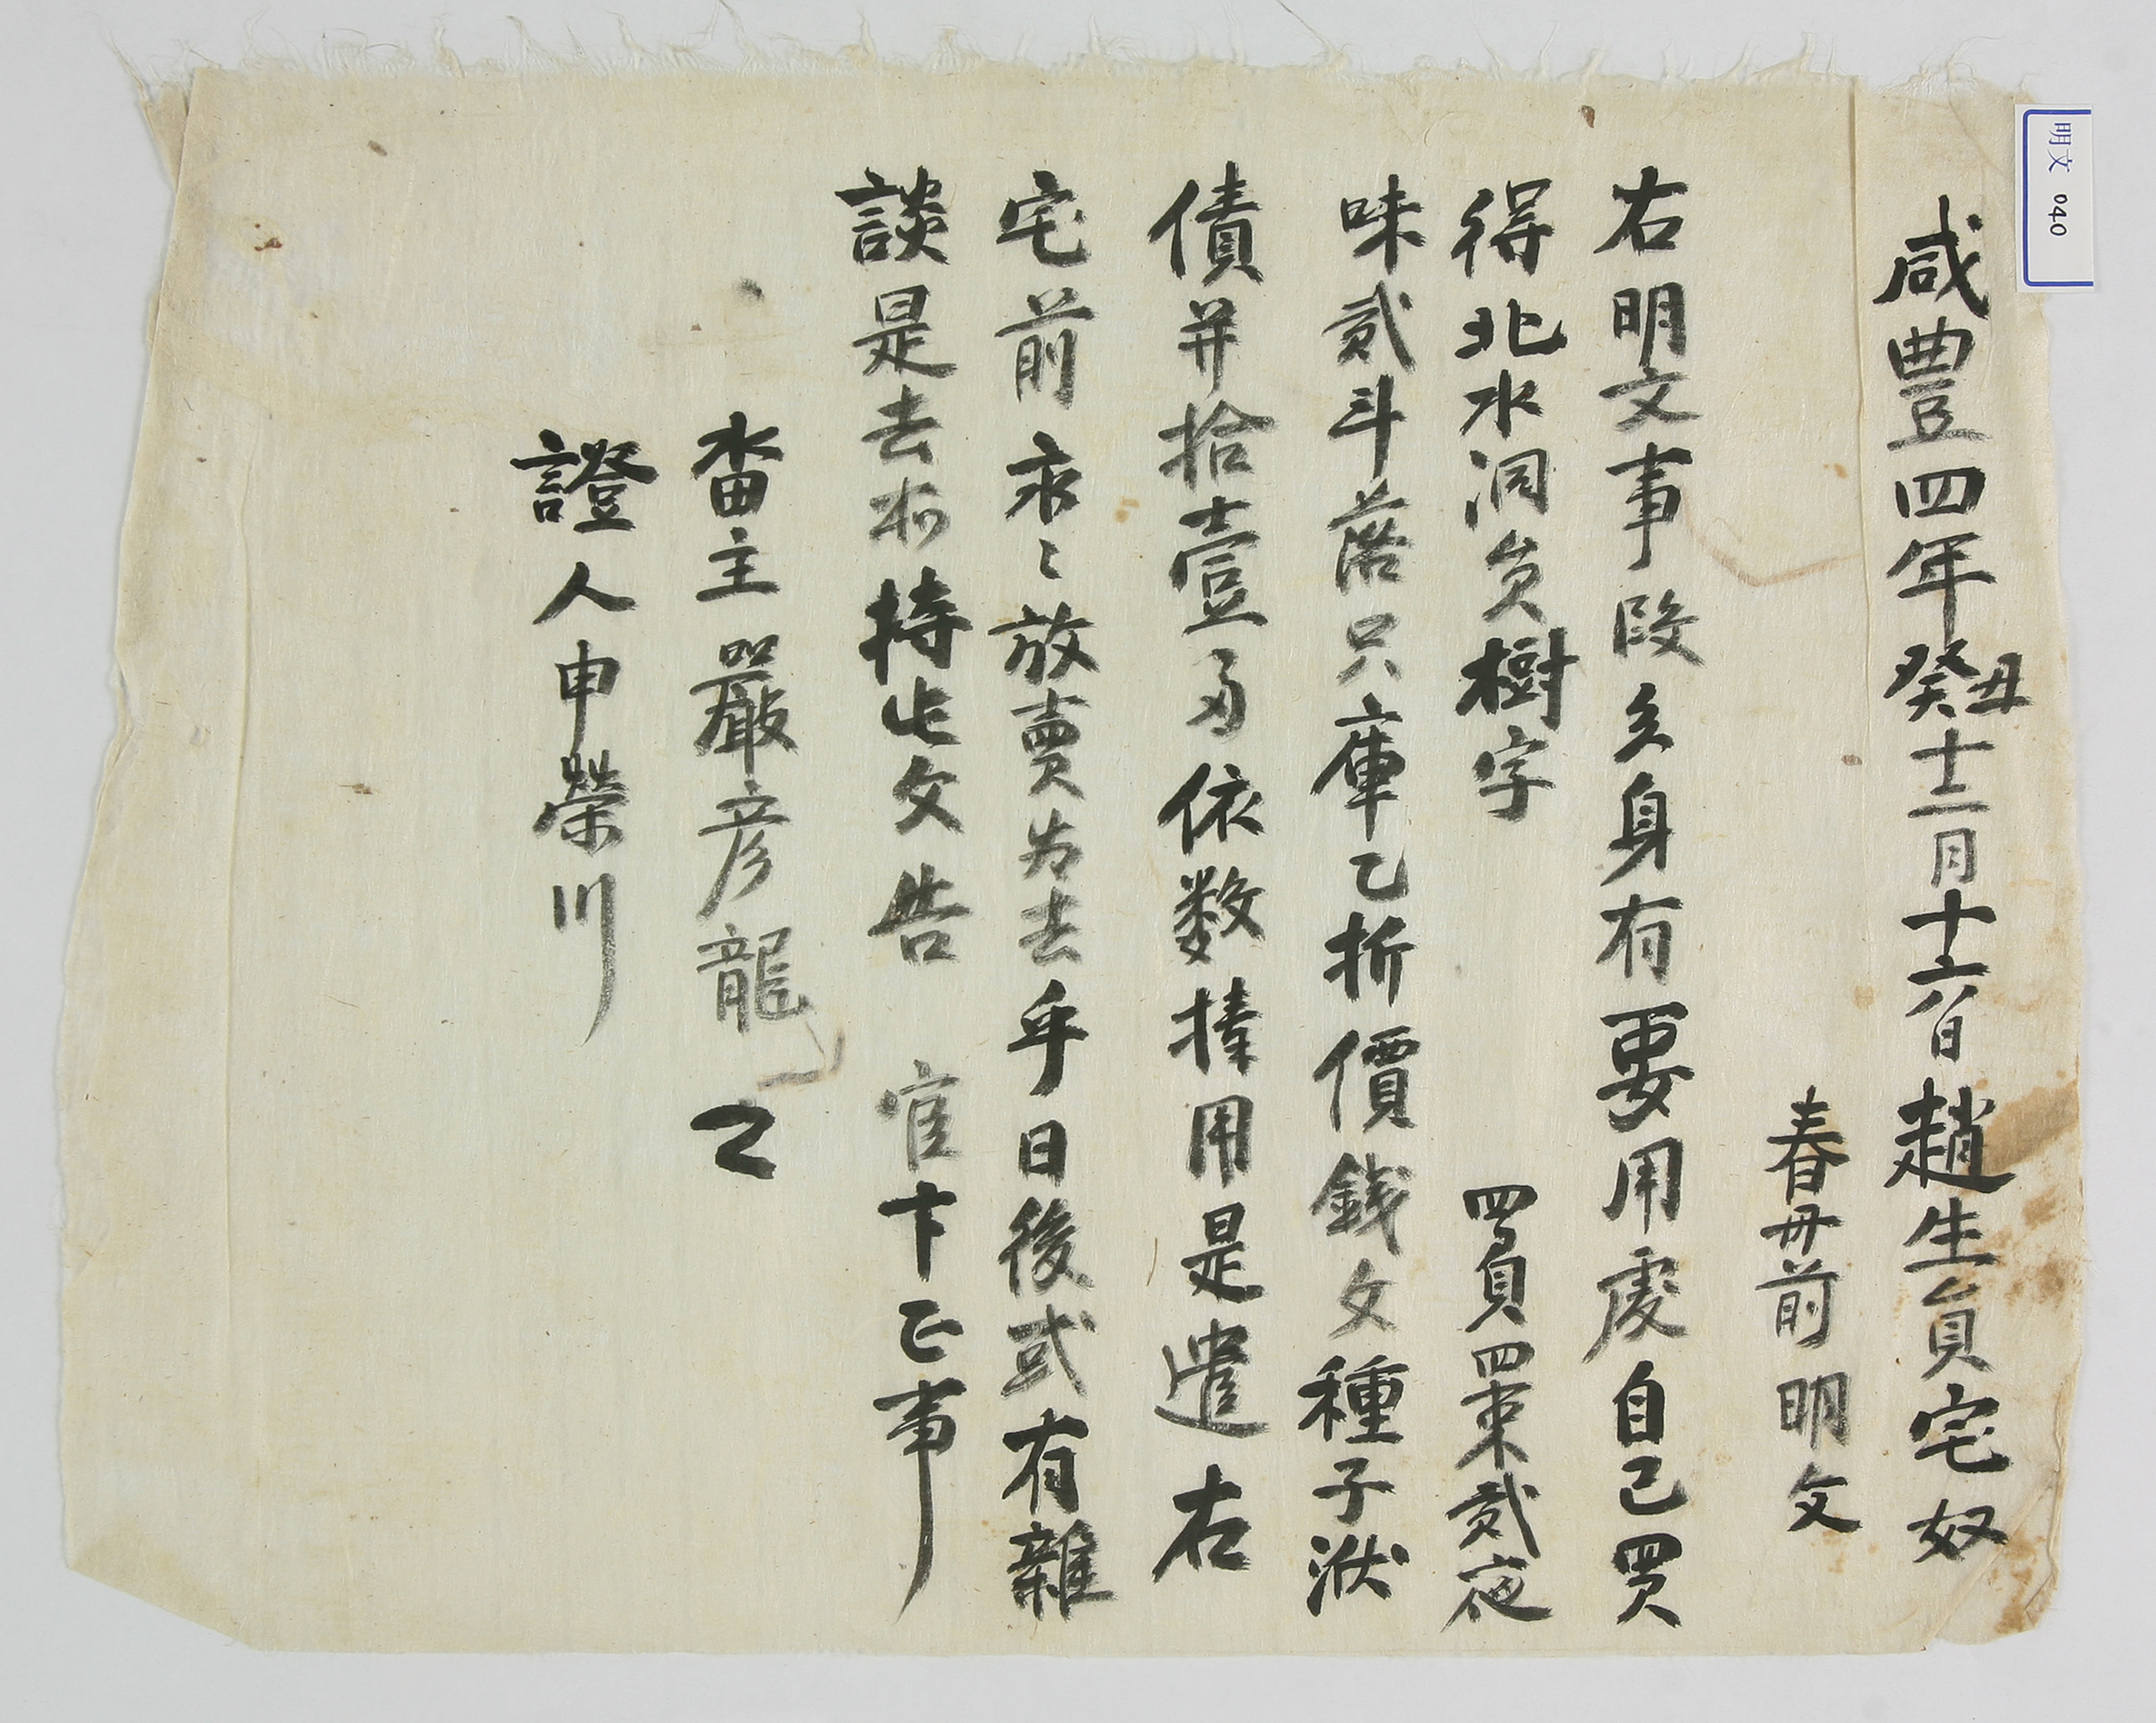 明文 040
咸豊四年癸丑十二月十六日趙生員宅奴
春丹前明文
右明文事段矣身有要用處自己買
得北水洞員樹字 四負四束貳夜
味貳斗落只庫乙折價錢文種子
債并拾壹両依数捧用是遣右
宅前永〻放賣为去乎日後或有雜
談是去等持此文告 官卞正事
畓主嚴彦龍
證人申榮川